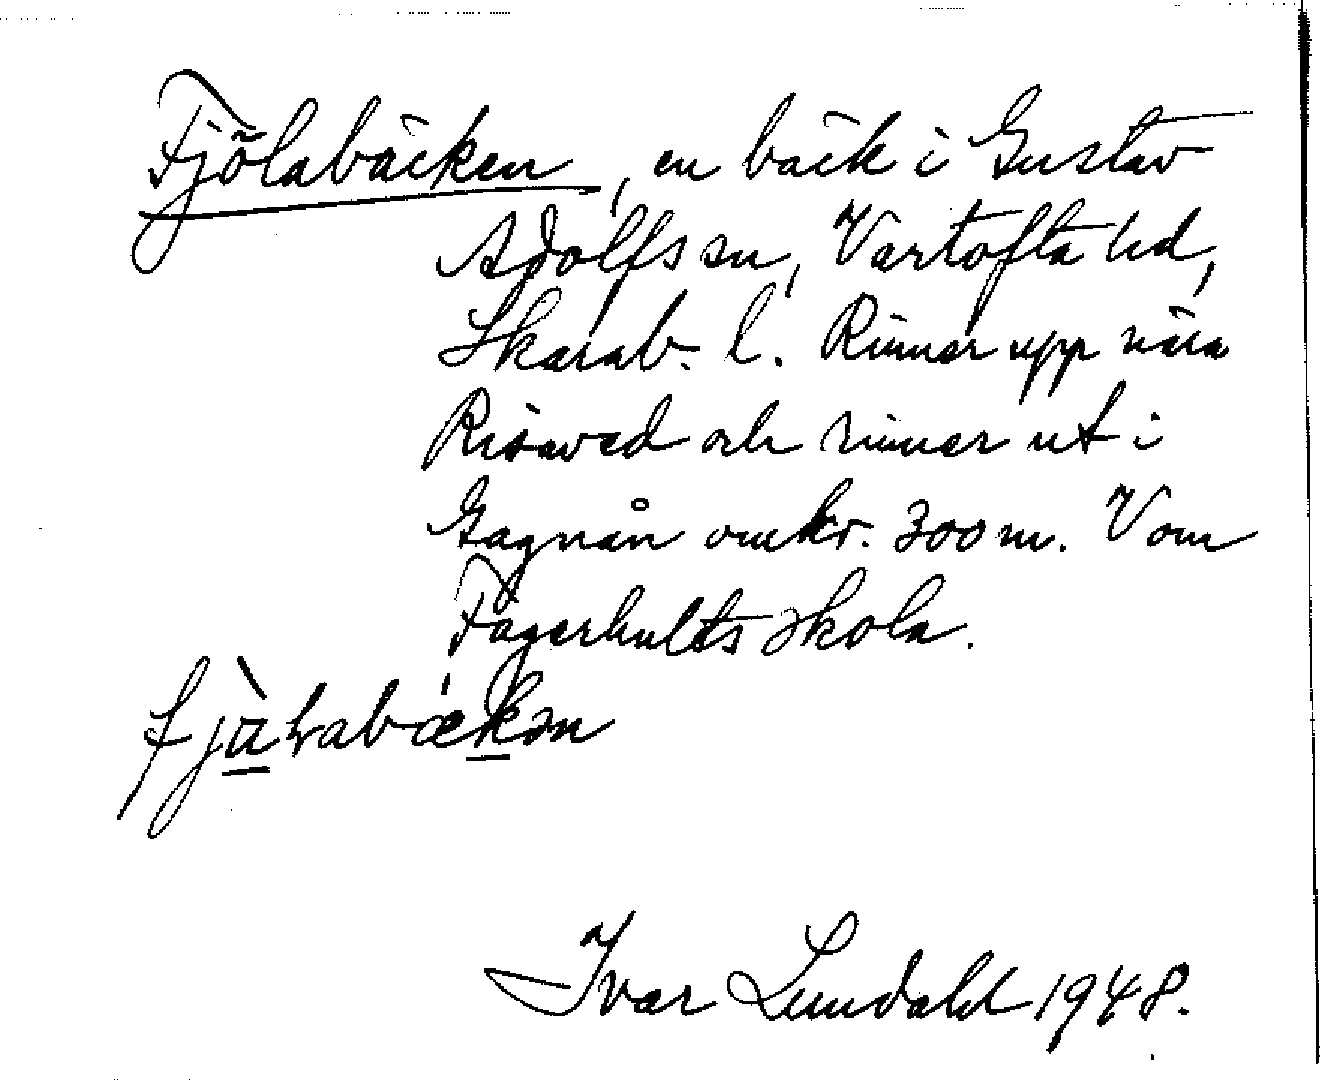 Fjölabäcken, en bäck i Gustav
Adolfs sn, Vartofta hd,
Skarab. l. Rinner upp nära
Risaved och rinner ut i
Gagnån omkr. 300 m. V om
Fagerhults skola.
Ivar Lundahl 1948.